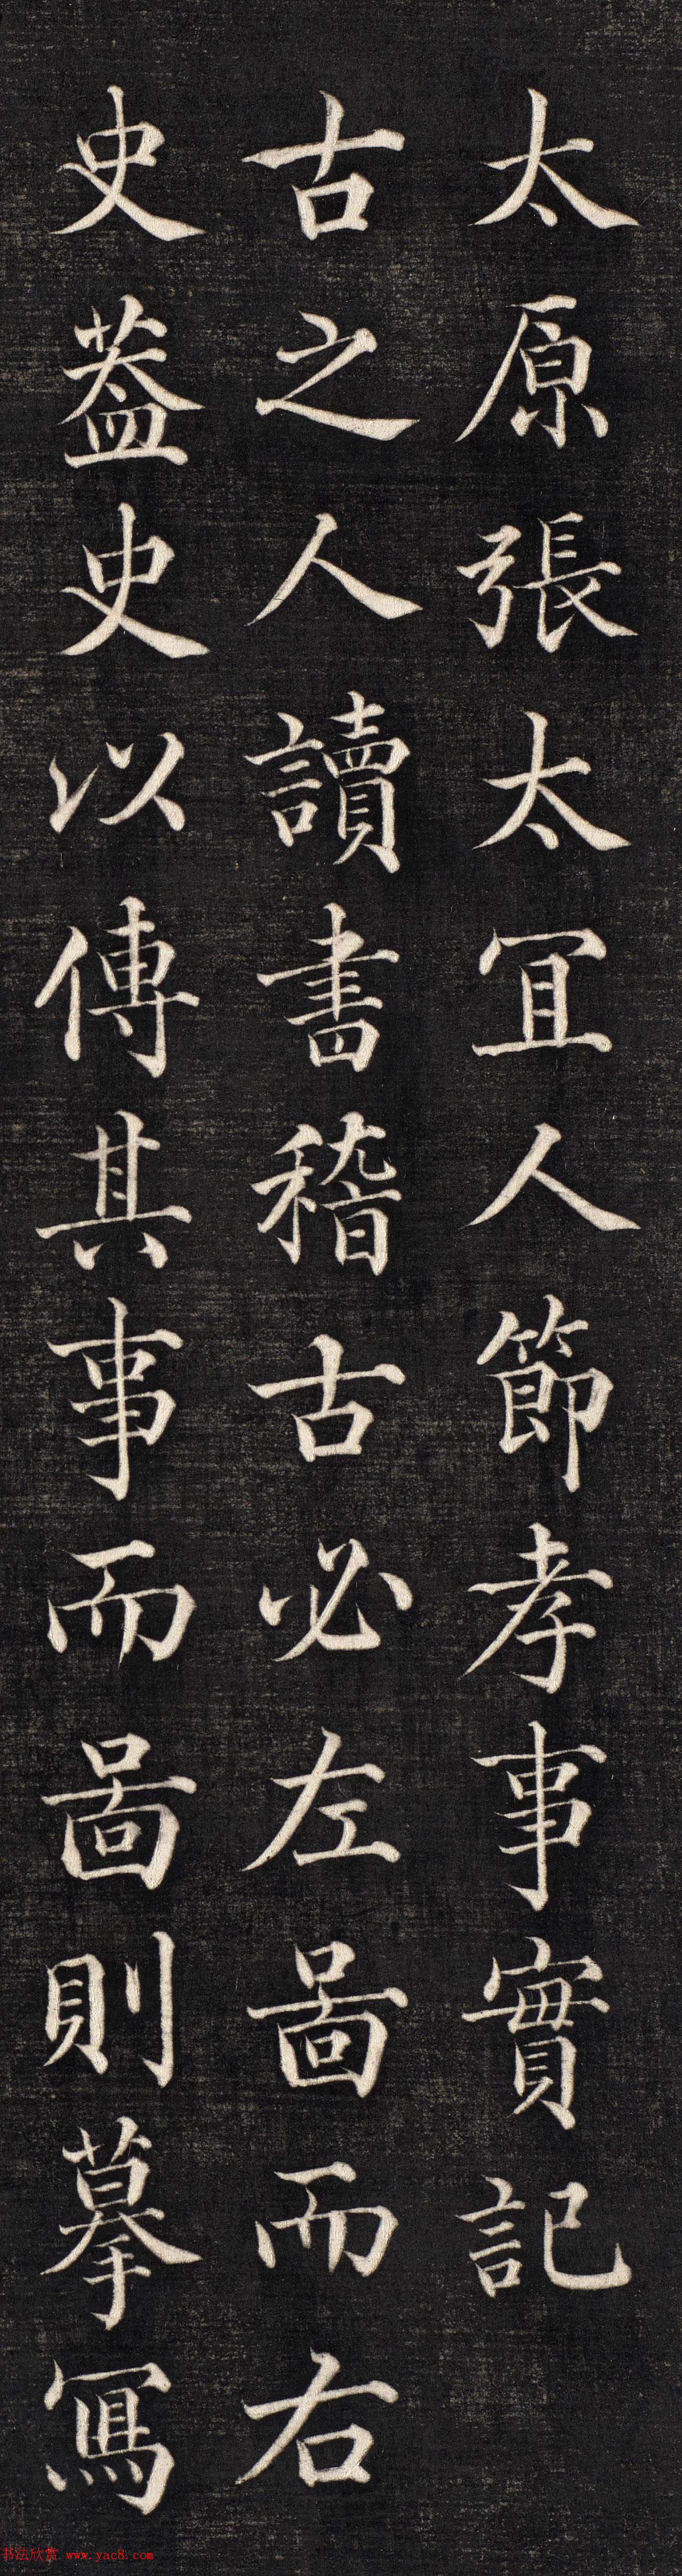 太原張太冝人節孝事實記
古之人讀書稽古必左啚而右
史葢史以傳其事而啚則摹冩
书法欣赏 www.yac8.com